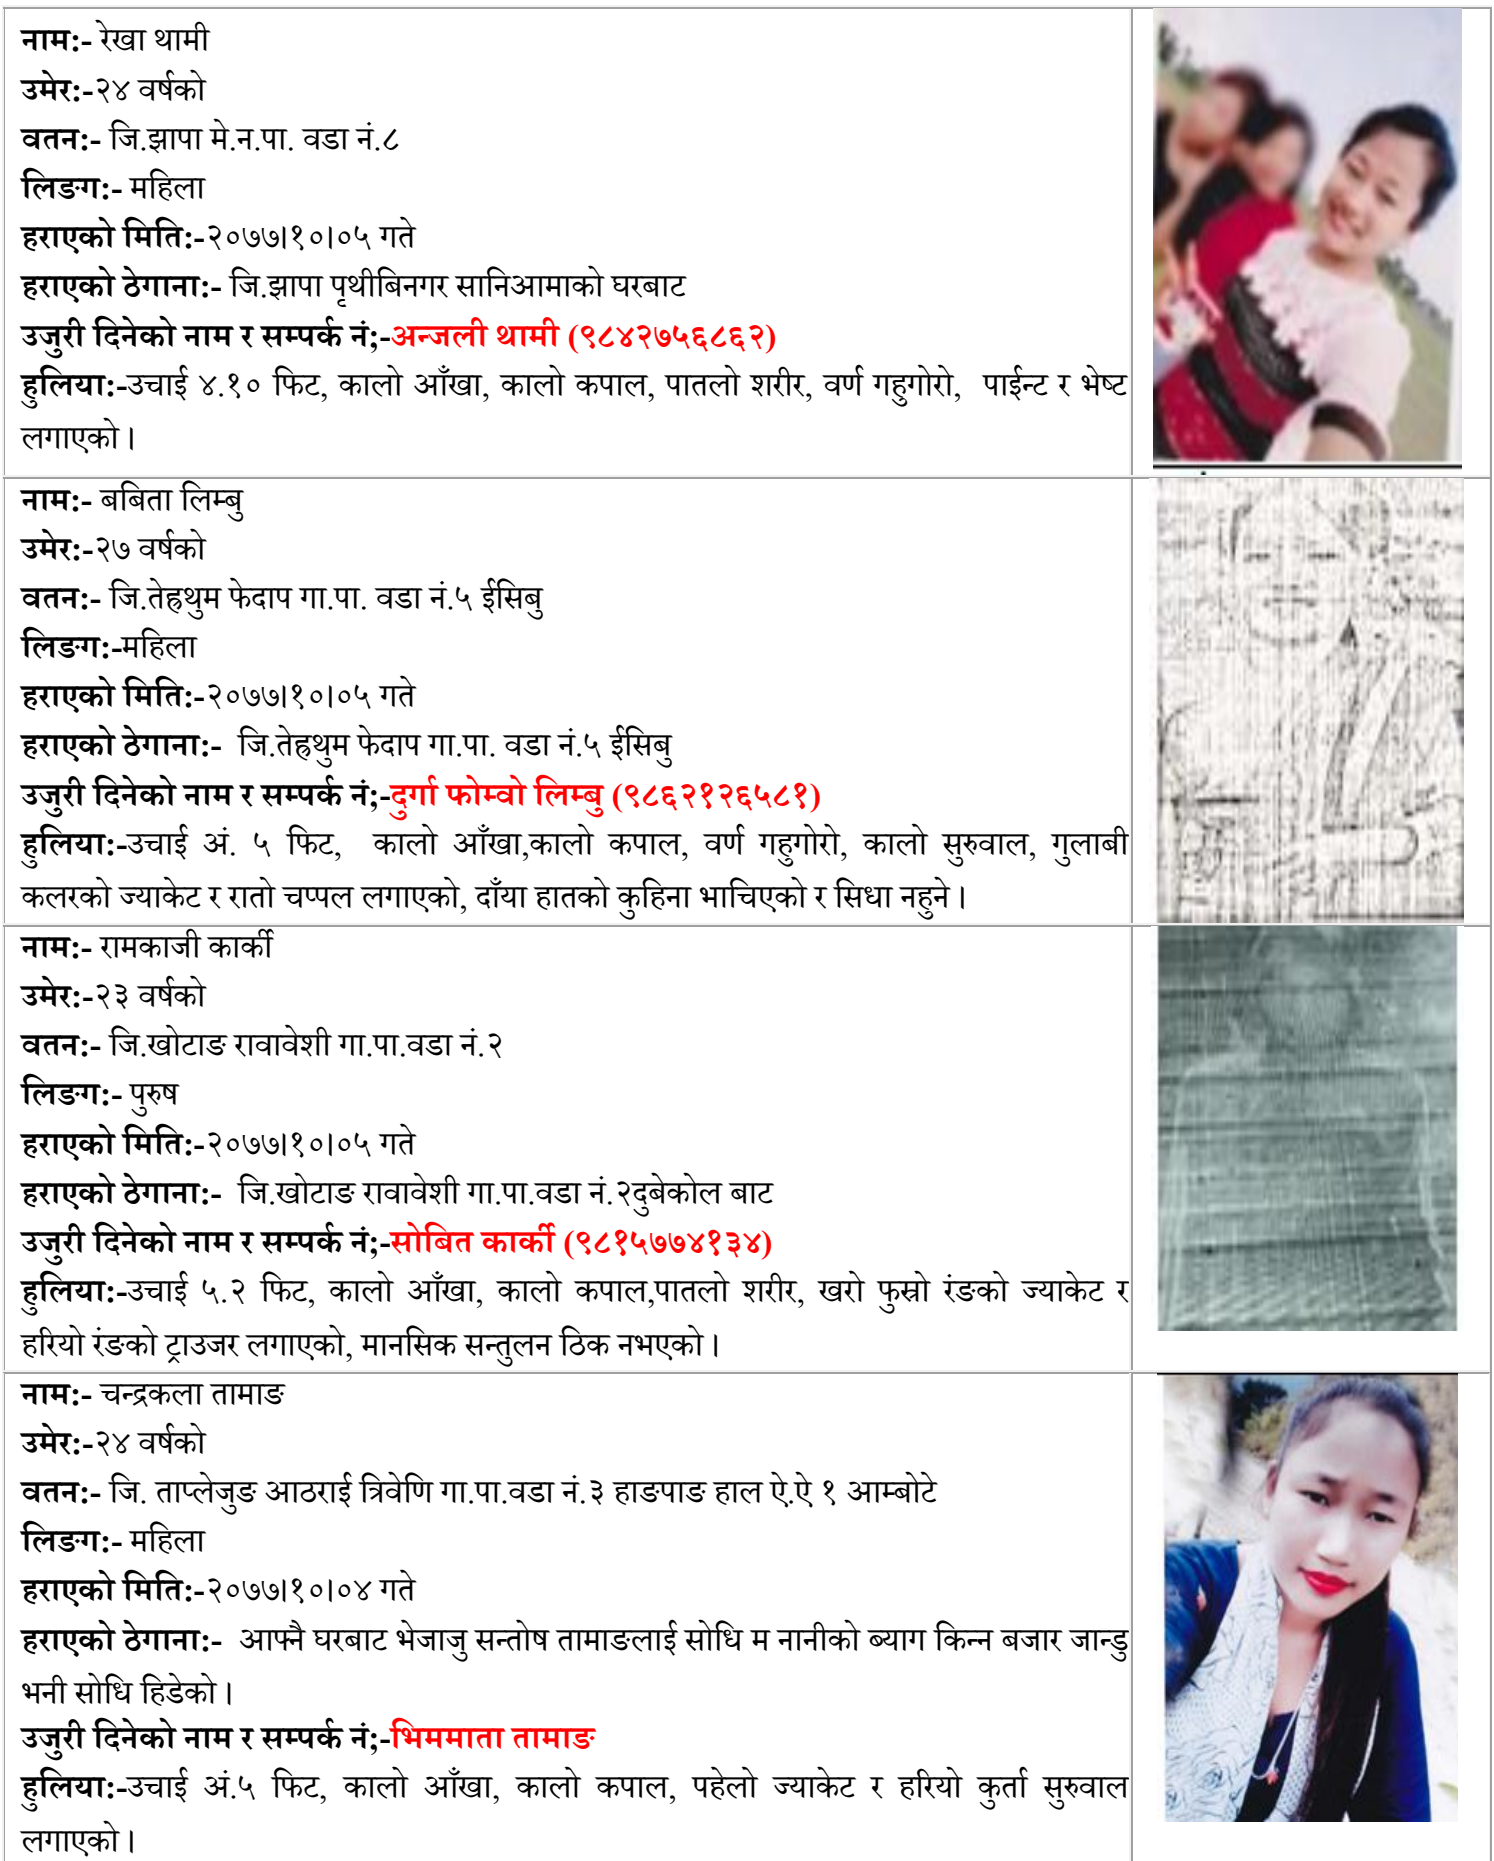 नाम:- रेखा थामी
उमेर:-२४ वर्षको
वतन:- जि.झापा मे.न.पा. वडा नं.८
लिङग:- महिला
हराएको मिति:-२०७७।१०।०५ गते
हराएको ठेगाना:- जि.झापा पृथीबिनगर सानिआमाको घरबाट
उजुरी दिनेको नाम र सम्पर्क नं;-अन्जली थामी (९८४२७५६८६२)
हुलिया:-उचाई ४.१० फिट, कालो आँखा, कालो कपाल, पातलो शरीर, वर्ण गहुगोरो, पाईन्ट र भेष्ट
लगाएको।
नाम:- बबिता लिम्बु
उमेर:-२७ वर्षको
वतन:- जि.तेह्रथुम फेदाप गा.पा. वडा नं.५ ईसिबु
लिङग:-महिला
हराएको मिति:-२०७७।१०।०५ गते
हराएको ठेगाना:- जि.तेह्रथुम फेदाप गा.पा. वडा नं.५ ईसिबु
उजुरी दिनेको नाम र सम्पर्क नं;-दुर्गा फोम्वो लिम्बु (९८६२१२६५८१)
हुलिया:-उचाई अं. ५ फिट, कालो आँखा,कालो कपाल, वर्ण गहुगोरो, कालो सुरुवाल, गुलाबी
कलरको ज्याकेट र रातो चप्पल लगाएको, दाँया हातको कुहिना भाचिएको र सिधा नहुने।
नाम:- रामकाजी कार्की
उमेर:-२३ वर्षको
वतन:- जि.खोटाङ रावावेशी गा.पा.वडा नं.२
लिङग:- पुरुष
हराएको मिति:-२०७७।१०।०५ गते
हराएको ठेगाना:- जि.खोटाङ रावावेशी गा.पा.वडा नं.२दुबेकोल बाट
उजुरी दिनेको नाम र सम्पर्क नं;-सोबित कार्की (९८१५७७४१३४)
हुलिया:-उचाई ५.२ फिट, कालो आँखा, कालो कपाल,पातलो शरीर, खरो फुस्रो रंङको ज्याकेट र
हरियो रंङको ट्राउजर लगाएको, मानसिक सन्तुलन ठिक नभएको।
नाम:- चन्द्रकला तामाङ
उमेर:-२४ वर्षको
वतन:- जि. ताप्लेजुङ आठराई त्रिवेणि गा.पा.वडा नं.३ हाङपाङ हाल ऐ.ऐ १ आम्बोटे
लिङग:- महिला
हराएको मिति:-२०७७।१०।०४ गते
हराएको ठेगाना:- आफ्नै घरबाट भेजाजु सन्तोष तामाङलाई सोधि म नानीको ब्याग किन्न बजार जान्छु
भनी सोधि हिडेको।
उजुरी दिनेको नाम र सम्पर्क नं;-भिममाता तामाङ
हुलिया:-उचाई अं.५ फिट, कालो आँखा, कालो कपाल, पहेलो ज्याकेट र हरियो कुर्ता सुरुवाल
लगाएको।